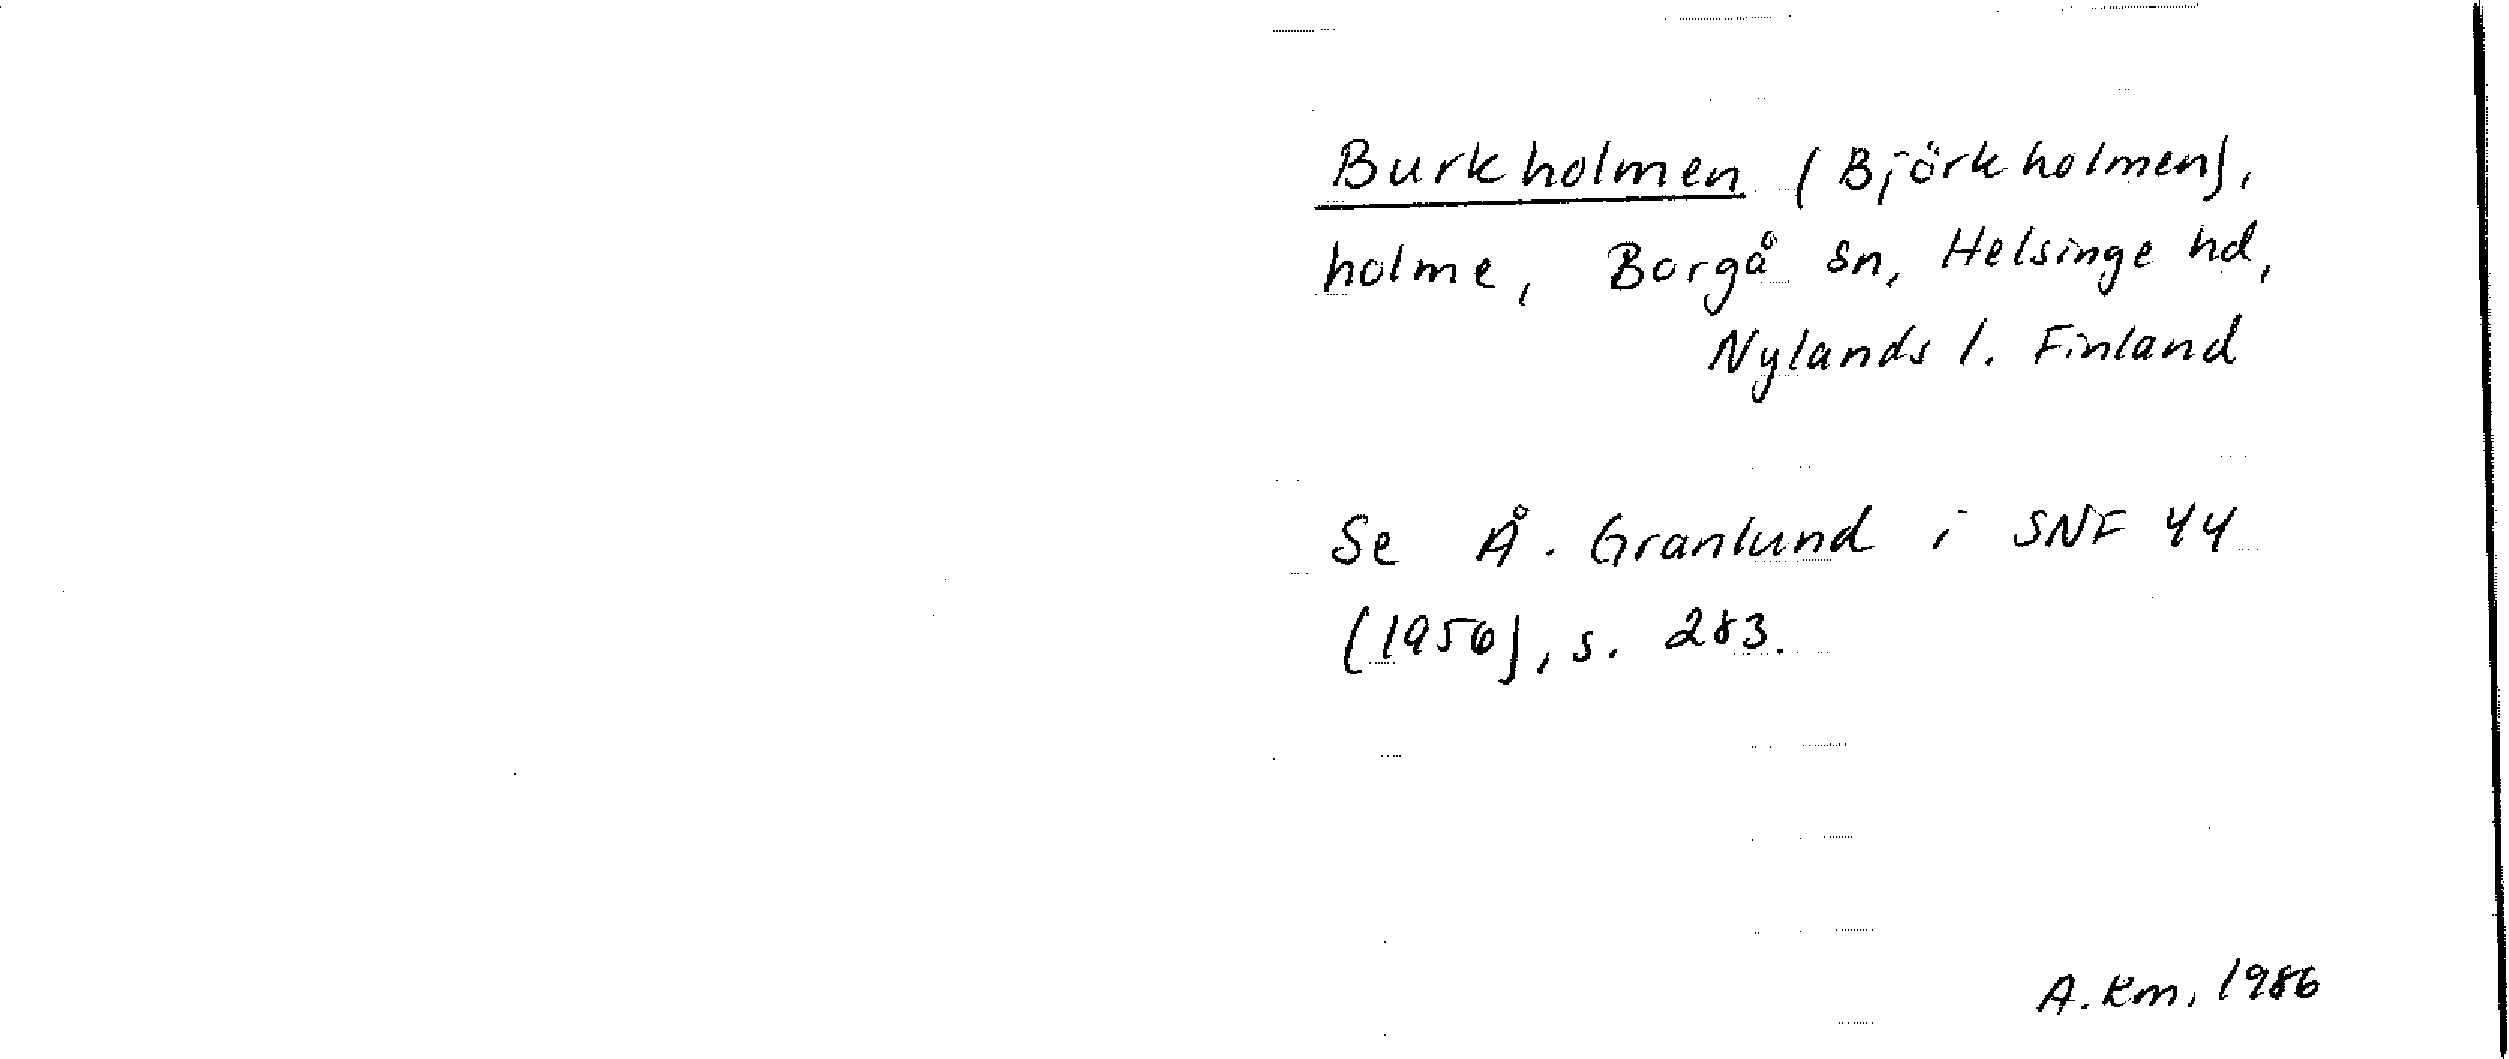 Burkholmen (Björkholmen),
holme, Borgå sn, Helsinge hd,
Nylands l. Finland
Se Å. Granlund i SNF 44
(1956), s. 283.
A. Km, 1986